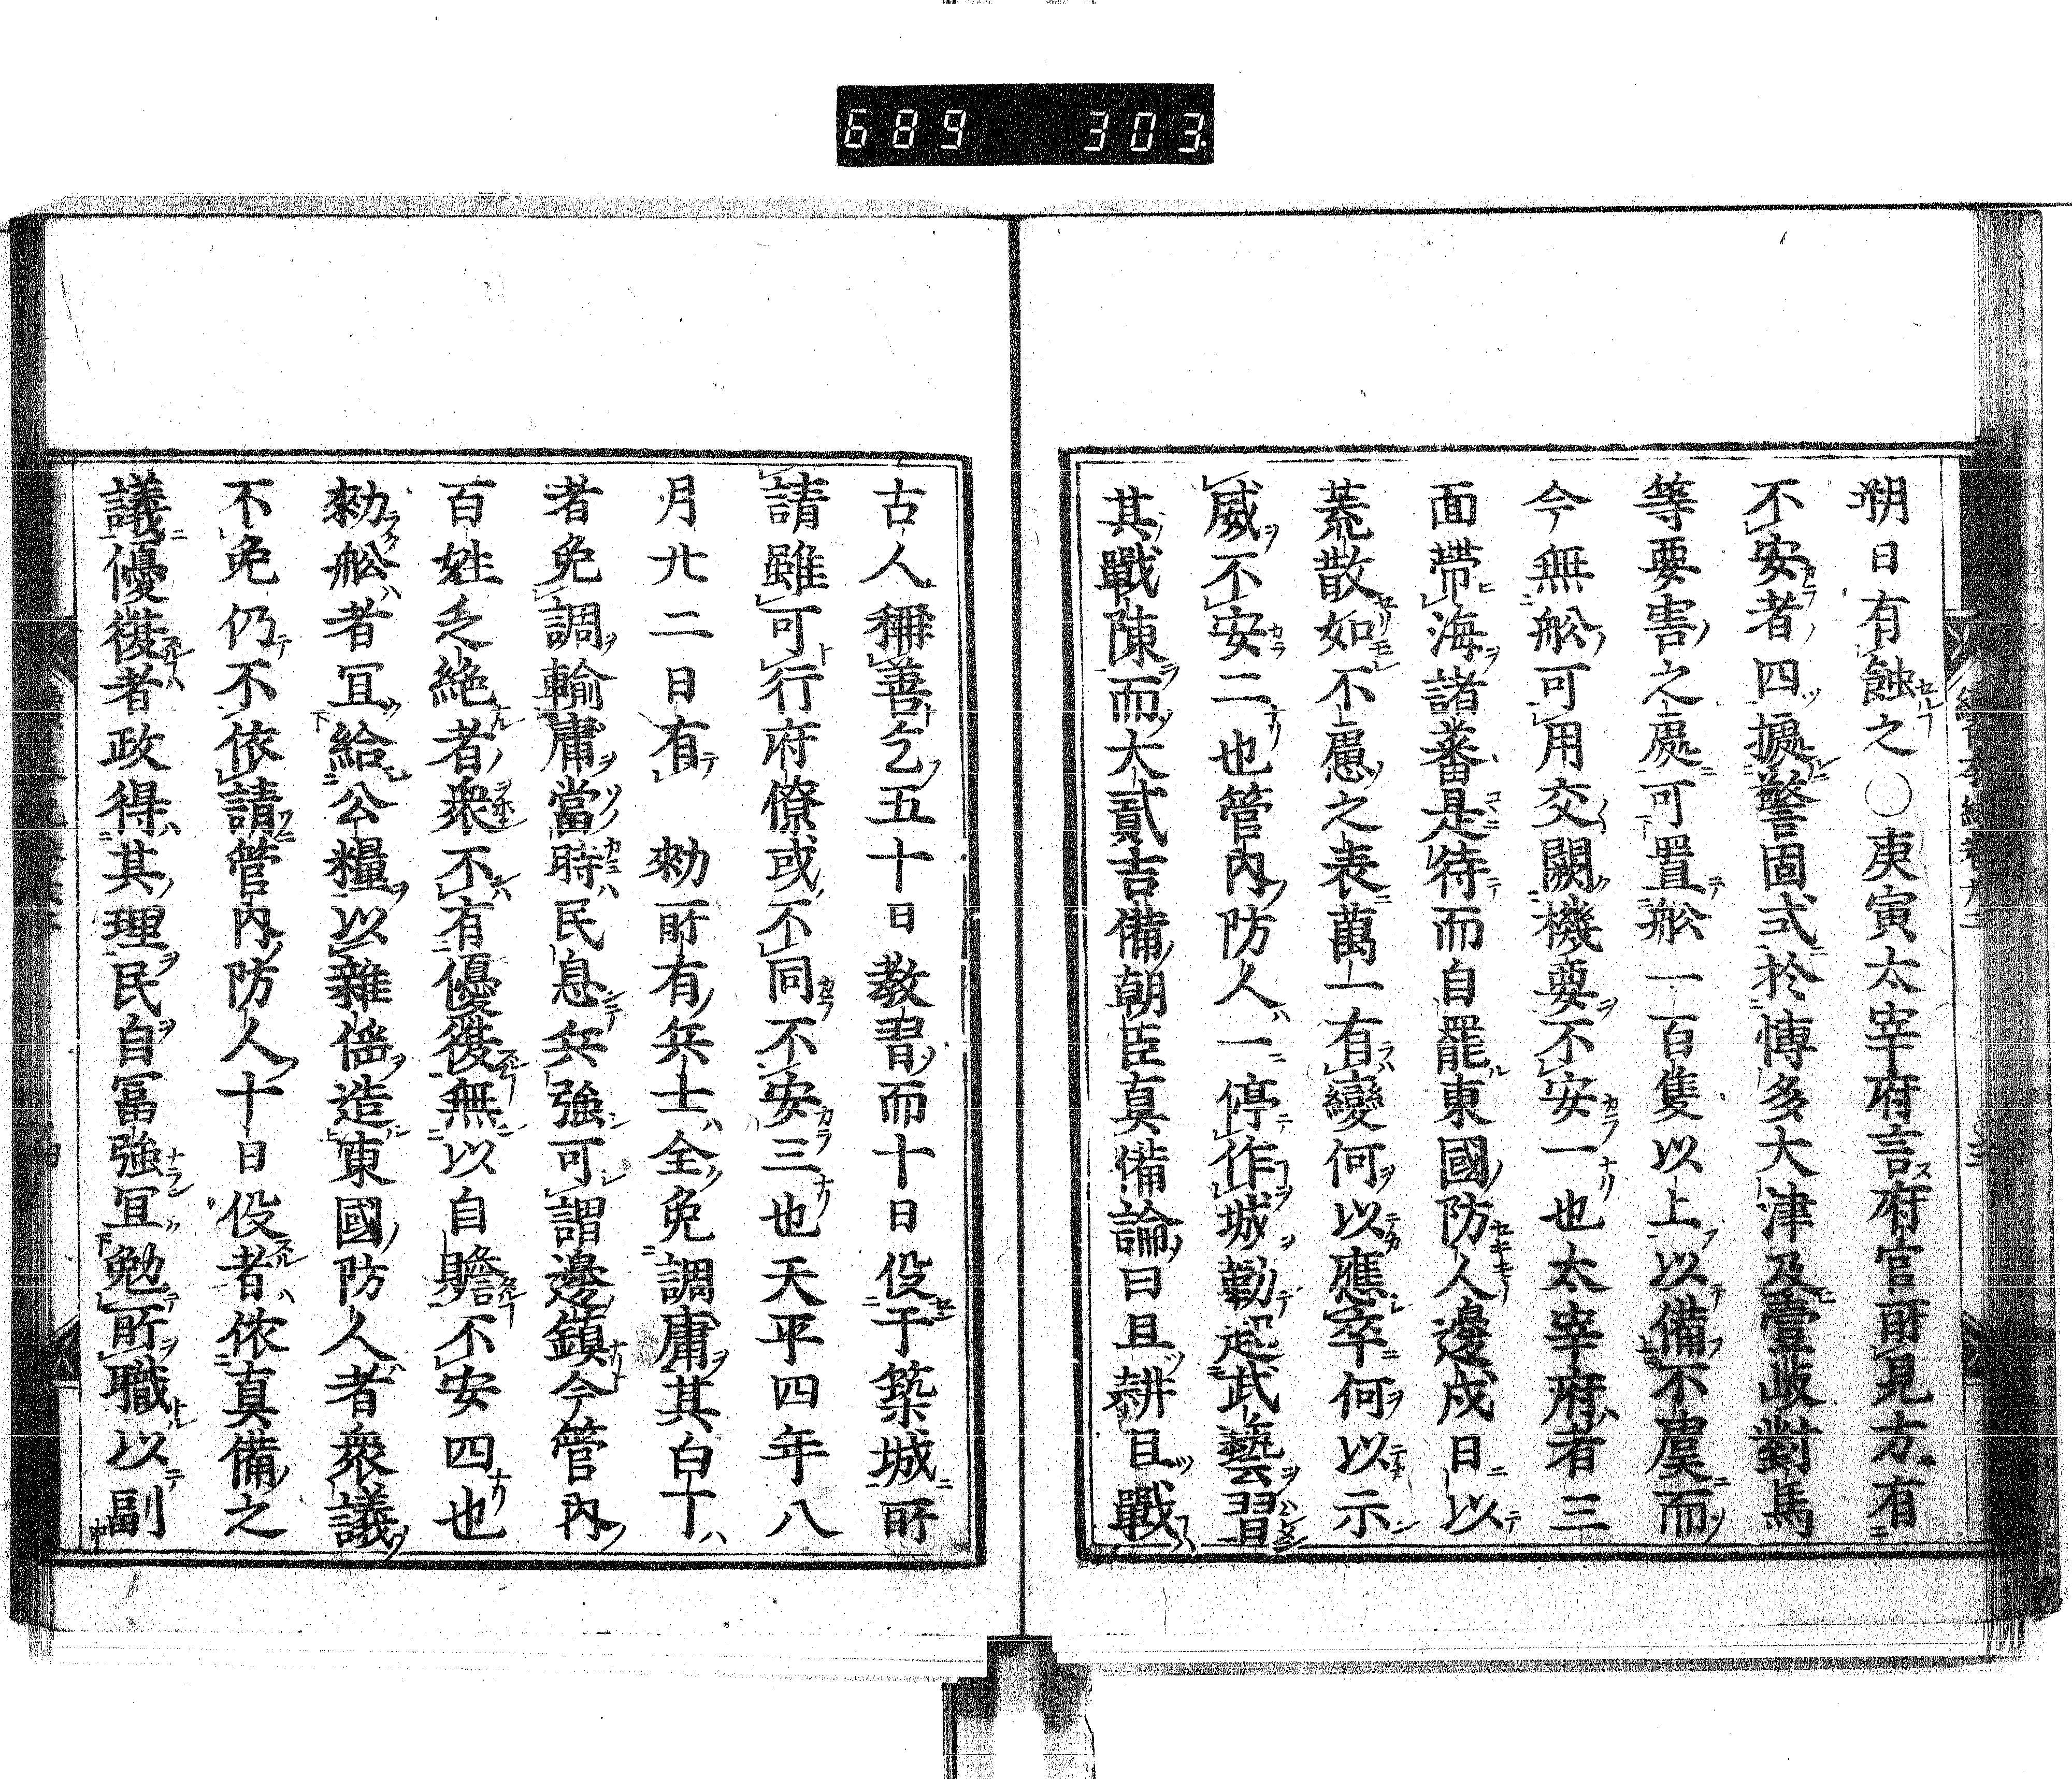 689 303
朔日有蝕之〇庚寅太宰府言府官所見方有
不安者四據警固式於博多大津及壹岐對馬
等要害之處可置舩一百隻以上以備不虞而
今無舩可用交闕機要不安一也太宰府者三
面帶海諸蕃是待而自罷東國防人邊戍日以
荒散如不慮之表萬一有變何以應卒何以示
威不安二也管內防人一停作城勤赴武藝習
其戰陳而大貳吉備朝臣真備論曰且耕且戰
古人稱善乞五十日教習而十日役于築城所
請雖可行府僚或不同不安三也天平四年八
月廿二日有 勑所有兵士全免調庸其白丁
者免調輸庸當時民息兵強可謂邊鎮今管內
百姓乏絶者衆不有優復無以自贍不安四也
勑舩者冝給公糧以雜徭造東國防人者衆議
不免仍不依請管內防人十日役者依真備之
議優復者政得其理民自冨強冝勉所職以副